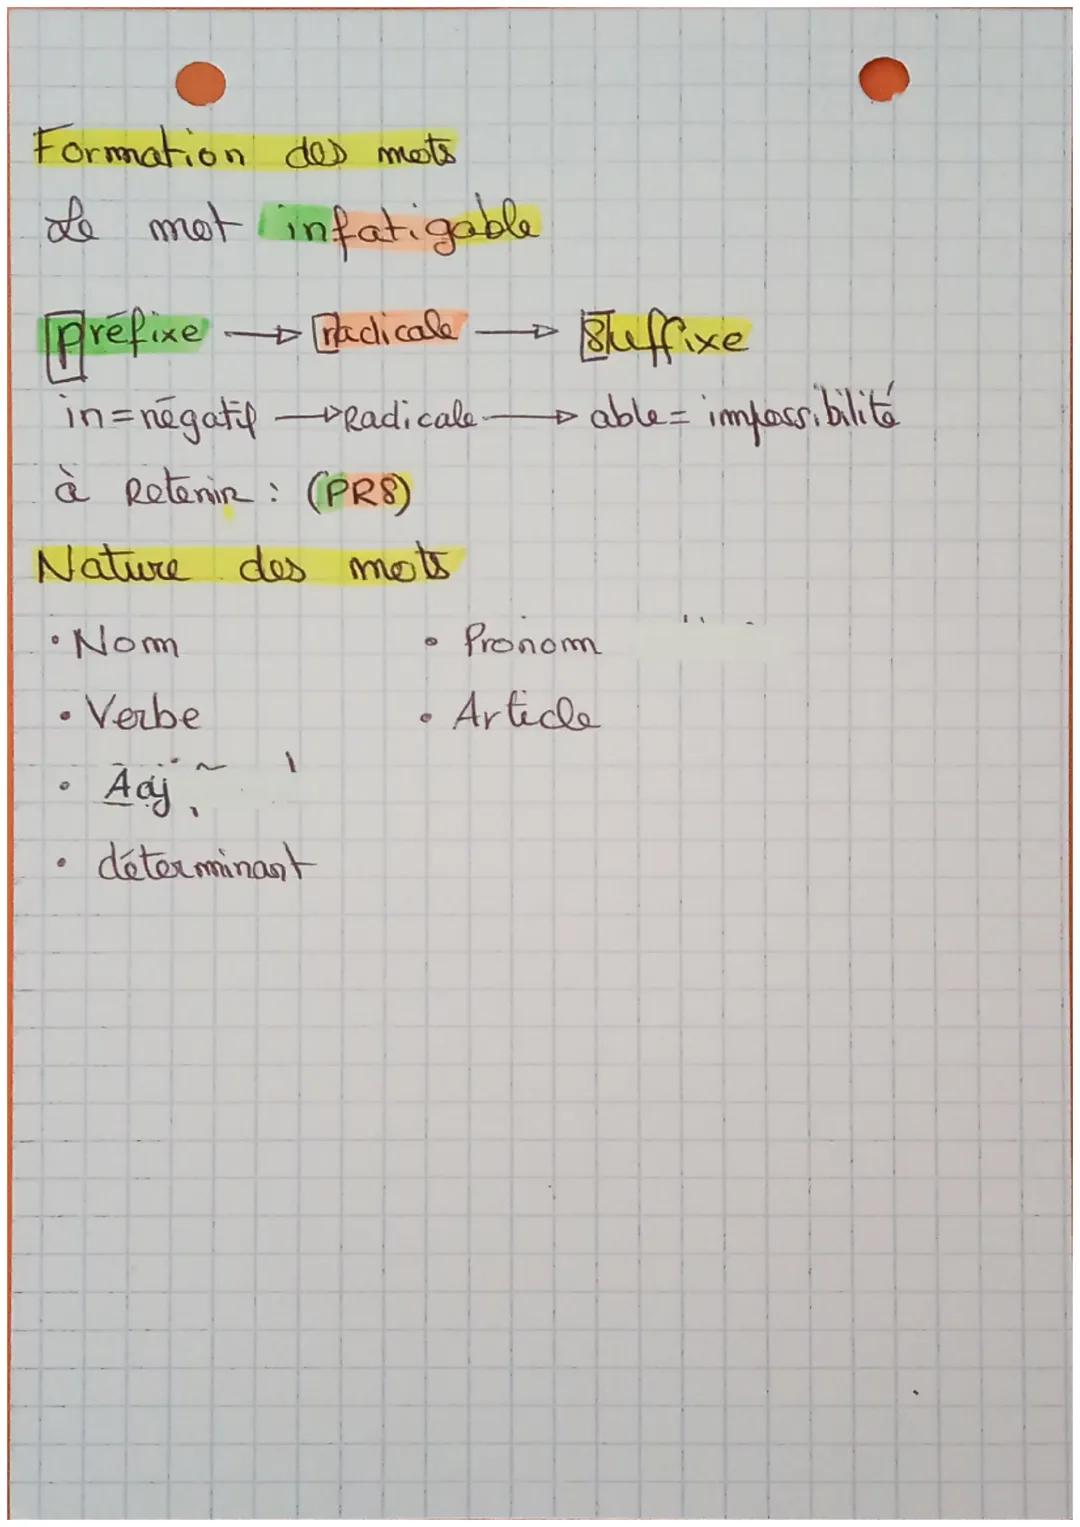 Formation des mots
Le mot infatigable
préfixe → radicale → Suffixe
in = négatif → Radicale → able = impossibilité
à Retenir : (PRS)
Nature des mots
• Nom
• Pronom
• Verbe
• Article
• Adj
• déterminant